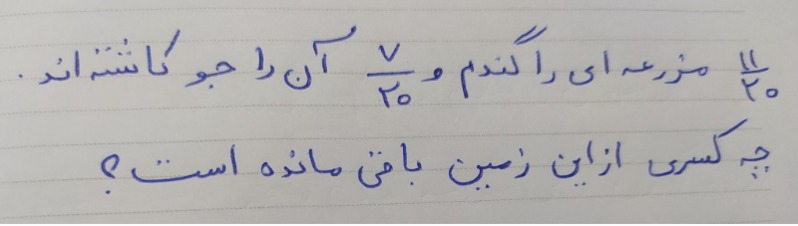 ۱۱/۲۰ مزرعه ای را گندم و ۷/۲۰ آن را جو کاشته اند.
چه کسری از این زمین باقی مانده است؟